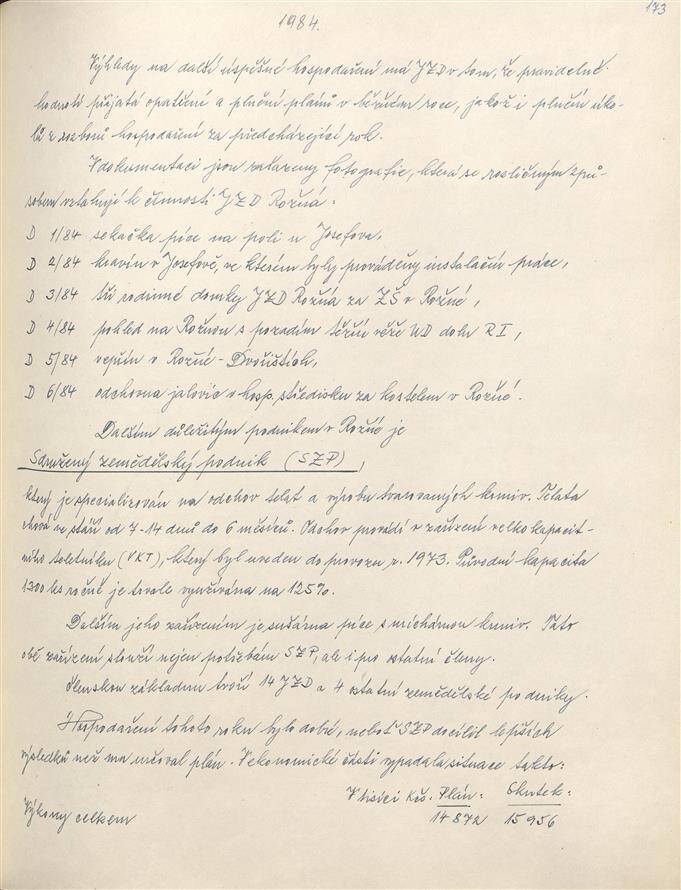 173
1984.
Výhledy na další úspěšné hospodaření má JZD v tom, že pravidelně
hodnotí přijatá opatření a plnění plánů v běžném roce, jakož i plnění úko-
lů z rozborů hospodaření za předcházející rok.
V dokumentaci jsou zařazeny fotografie, která se rozličným způ-
sobem vztahují k činnosti JZD Rožná:
D 1/84 sekačka píce na poli u Josefova,
D 2/84 kravín v Josefově, ve kterém byly prováděny instalační práce,
D 3/84 tři rodinné domky JZD Rožná za ZŠ v Rožné,
D 4/84 pohled na Rožnou s pozadím těžní věže UD dolu R I,
D 5/84 vepřín v Rožné-Dvořištích,
D 6/84 odchovna jalovic v hosp. středisku za kostelem v Rožné.
Dalším důležitým podnikem v Rožné je
Sdružený zemědělský podnik (SZP),
který je specializován na odchov telat a výrobu tvarovaných krmiv. Telata
chová ve stáří od 7-14 dnů do 6 měsíců. Odchov provádí v zařízení velkokapacit-
ního teletníku (VKT), který byl uveden do provozu r. 1973. Původní kapacita
1300 ks ročně je trvale využívána na 125%.
Dalším jeho zařízením je sušárna píce s míchárnou krmiv. Tato
obě zařízení slouží nejen potřebám SZP, ale i pro ostatní členy.
Členskou základnu tvoří 14 JZD a 4 ostatní zemědělské podniky.
Hospodaření tohoto roku bylo dobré, neboť SZP docílil lepších
výsledků než mu určoval plán. V ekonomické části vypadala situace takto:
V tisíci Kčs. Plán: Skutek:
Výkony celkem 14 872 15 956